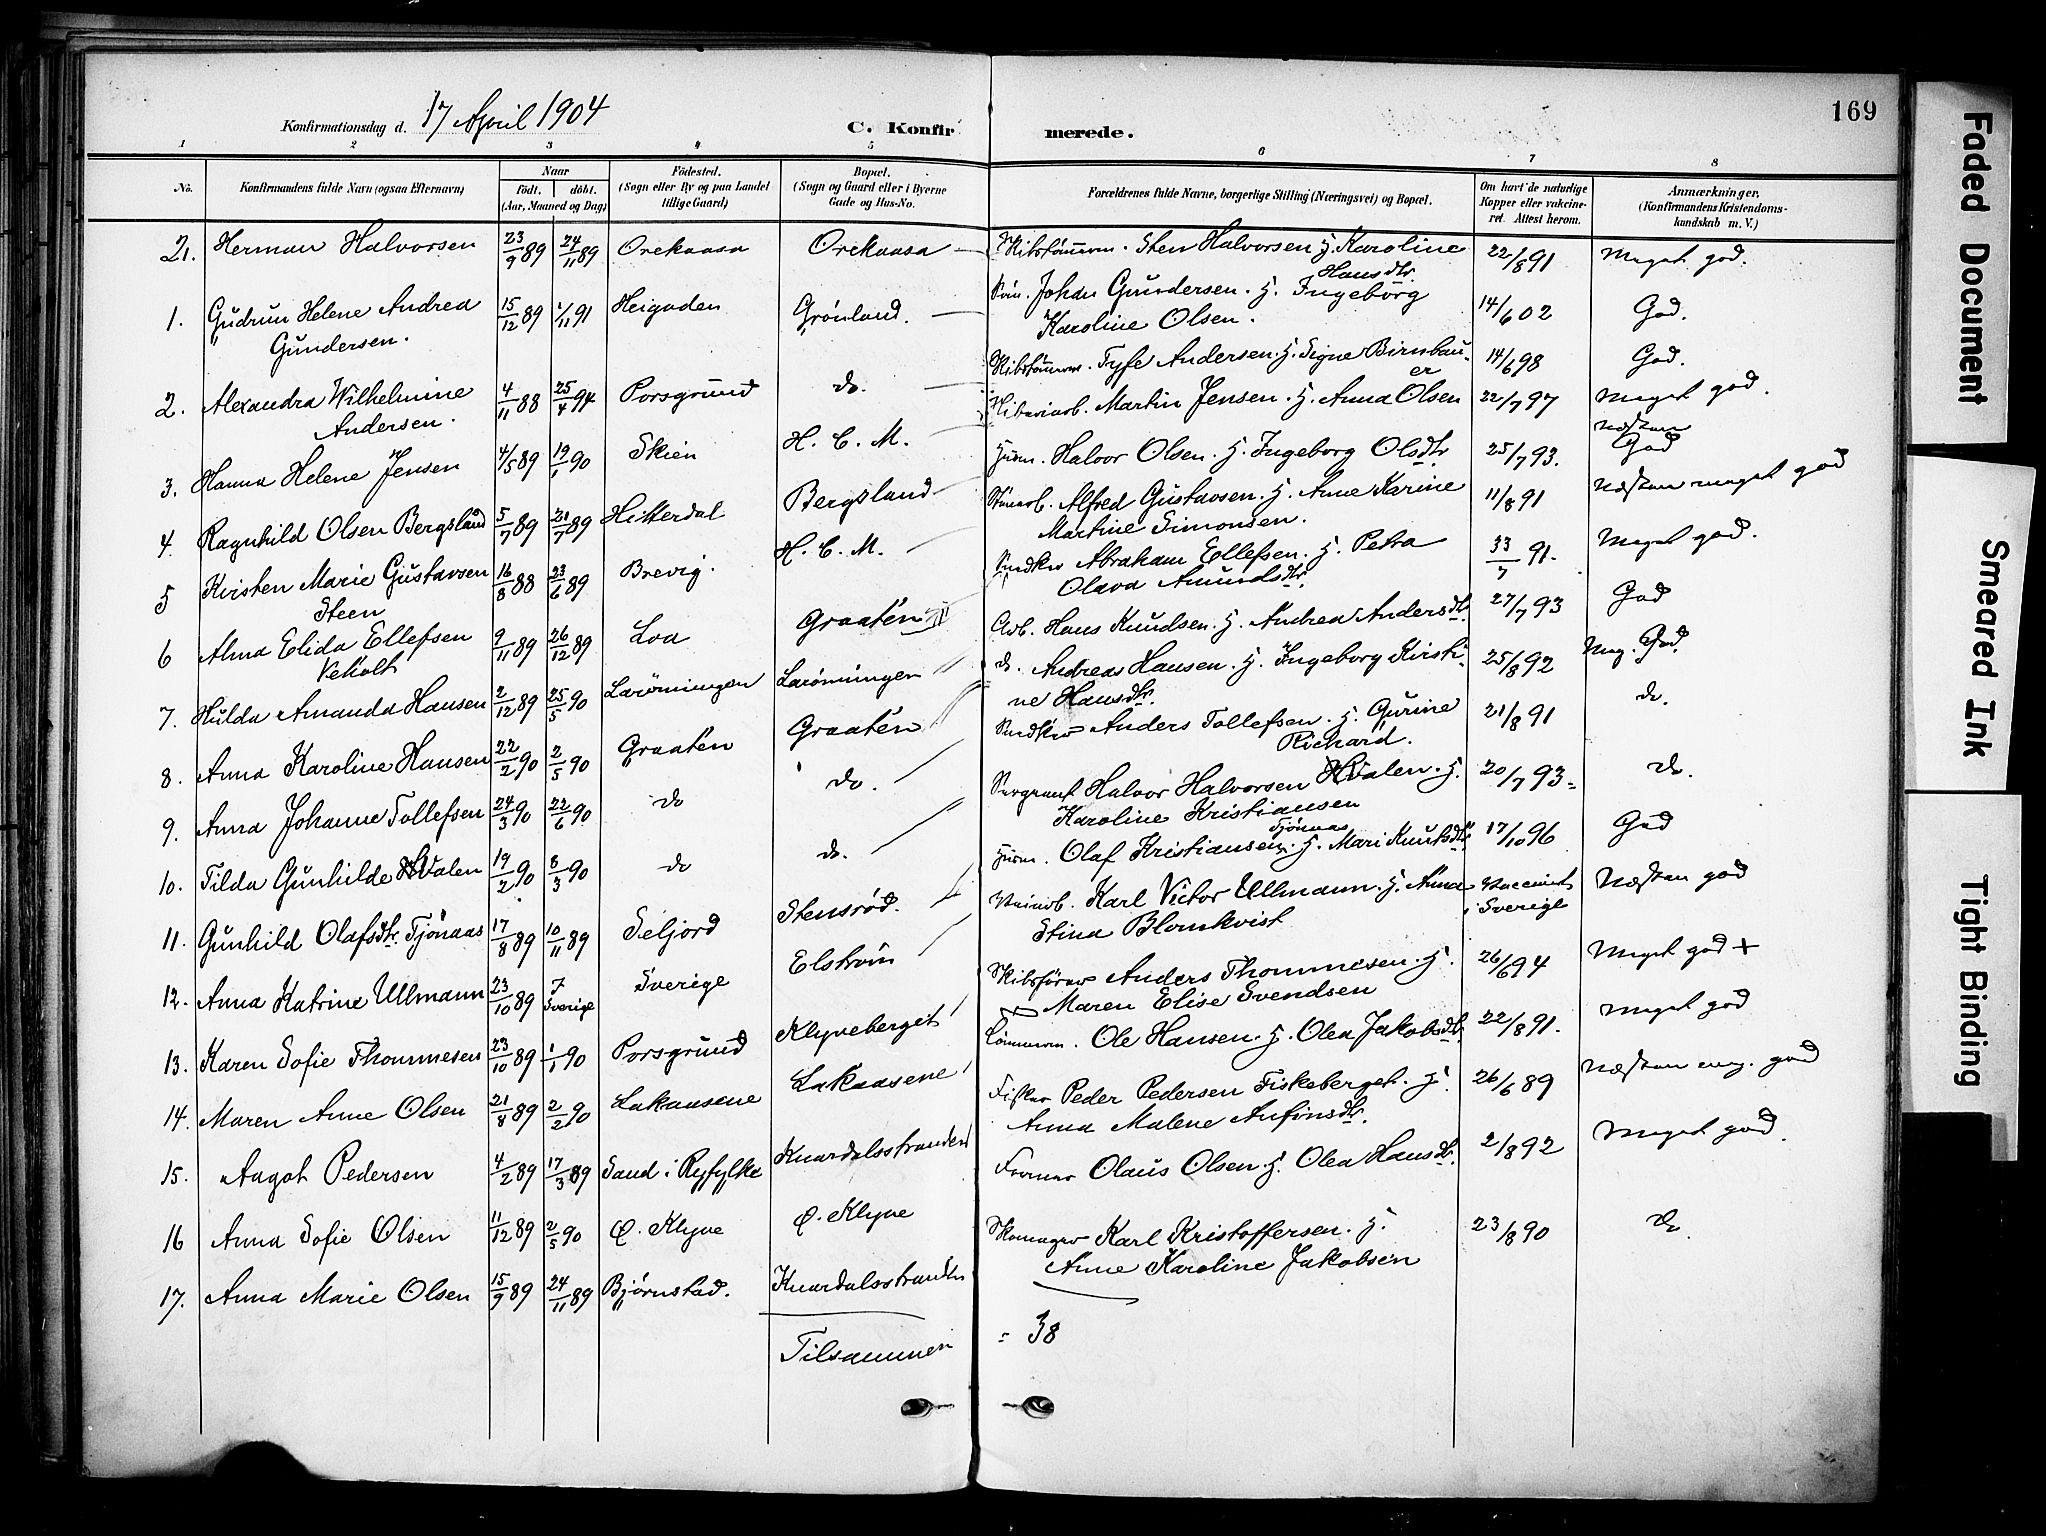 169
Konfirmationsdag d. 17 April 1904
C. Konfirmerede.
1 2 3 4 5 6 7 8
No.
Konfirmandens fulde Navn (ogsaa Efternavn)
Naar
födt. döbt.
(Aar, Maaned og Dag)
Födested.
(Sogn eller By og paa Landet
tillige Gaard)
Bopæl.
(Sogn og Gaard eller i Byerne
Gade og Hus-No.
Forældrenes fulde Navne, borgerlige Stilling (Næringsvei) og Bopæl.
Om havt de naturlige
Kopper eller vakcine-
ret. Attest herom.
Anmærkninger,
(Konfirmandens Kristendoms-
kundskab m. V.)
21. Herman Halvorsen 23/9 89 24/11 89 Orekaasa Orekaasa Skibstømm. Sten Halvorsen H. Karoline 22/8 91 Meget god.
Hansdtr.
1. Gudrun Helene Andrea 15/12 89 1/11 91 Heigaden Grønland. Søm. Johan Gundersen. H. Ingeborg 14/6 02 God.
Gundersen. Karoline Olsen.
2. Alexandra Wilhelmine 4/11 88 25/4 94 Porsgrund do. Skibstømm. Fyfe Andersen. H. Signe Birnbau- 14/6 98 God.
Andersen. er
3. Hanna Helene Jensen 4/5 89 19/1 90 Skien H. C. M. Martin Jensen. H. Anna Olsen 22/7 97 Meget god.
4. Ragnhild Olsen Bergsland 5/7 89 21/7 89 Hitterdal Bergsland Husm. Halvor Olsen. H. Ingeborg Olsdtr. 25/7 93. Næsten
God
5 Kirsten Marie Gustavsen 16/8 88 23/6 89 Brevig. H. C. M. Alfred Gustavsen. H. Anne Karine 11/8 91 Næsten meget god
Steen Martine Simonsen.
6 Alma Elida Ellefsen 9/11 89 26/12 89 Loa Graatén Abraham Ellefsen. H. Petra 33/7 91. Meget god.
Vekolt Olava Amundsdtr.
7. Hulda Amanda Hansen 2/12 89 25/5 90 Larønningen Larønningen Arb. Hans Knudsen. H. Andrea Andersdtr. 27/7 93 God
8. Anna Karoline Hansen 22/2 90 2/5 90 Graatén Graatén do. Andreas Hansen. H. Ingeborg Kirsti- 25/8 92 Meg. God.
ne Hansdtr.
9. Anna Johanne Tollefsen 24/3 90 22/6 90 do do. Anders Tollefsen. H. Gurine 21/8 91 do.
Richard.
10. Tilda Gunhilde Hvalen 19/2 90 8/3 90 do do. Sergeant Halvor Halvorsen Hvalen. H. 20/7 93 do.
Karoline Kristiansen
11. Gunhild Olafsdtr. Tjönaas 17/8 89 10/11 89 Seljord Stensrød. Husm. Olaf Kristiansen Tjónaas H. Mari Knutsdtr. 17/10 96 God
12. Anna Katrine Ullmann 23/10 89 ? Sverige Sverige Elstrøm Karl Victor Ullmann. H. Anna Vaccinert Næsten god
Stina Blomkvist i Sverige
13. Karen Sofie Thommesen 23/10 89 1/1 90 Porsgrund Klyveberget Skibsfører Anders Thommesen. H. 26/6 94 Meget god +
Maren Elise Svendsen
14. Maren Anne Olsen 21/8 89 2/2 90 Lakaasene Lakaasene Tømmerm. Ole Hansen. H. Olea Jakobsdtr. 22/8 91. Meget god
15. Aagot Pedersen 4/2 89 17/3 89 Sand i Ryfylke Knardalsstranden Fisker Peder Pedersen Fiskeberget. H. 26/6 89 Næsten meg. god
Anna Malene Anfinsdtr.
16 Anna Sofie Olsen 11/12 89 2/5 90 Ø. Klyve Ø. Klyve Former Olaus Olsen H. Olea Hansdtr. 2/8 92 Meget god.
17. Anna Marie Olsen 15/9 89 24/11 89 Bjørnstad. Knardalsstranden Skomager Karl Kristoffersen. H. 23/8 90 do.
Anne Karoline Jakobsen
Tilsammen = 38
Faded Document
Smeared Ink
Tight Binding